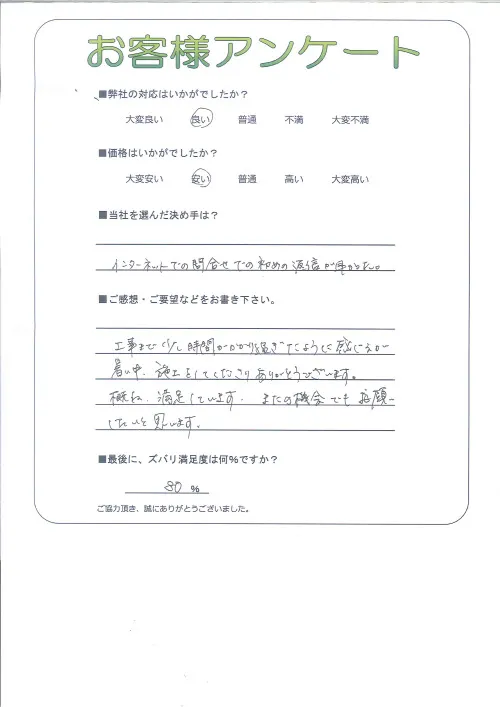 お客様アンケート
■弊社の対応はいかがでしたか？
大変良い 良い 普通 不満 大変不満
■価格はいかがでしたか？
大変安い 安い 普通 高い 大変高い
■当社を選んだ決め手は？
インターネットでの問合せでの初めの返信が早かった。
■ご感想・ご要望などをお書き下さい。
工事まで少し時間がかかり過ぎたように感じたが
暑い中、施工をしてくださりありがとうございます。
概ね、満足しています。またの機会でもお願い
したいと思います。
■最後に、ズバリ満足度は何％ですか？
80 ％
ご協力頂き、誠にありがとうございました。